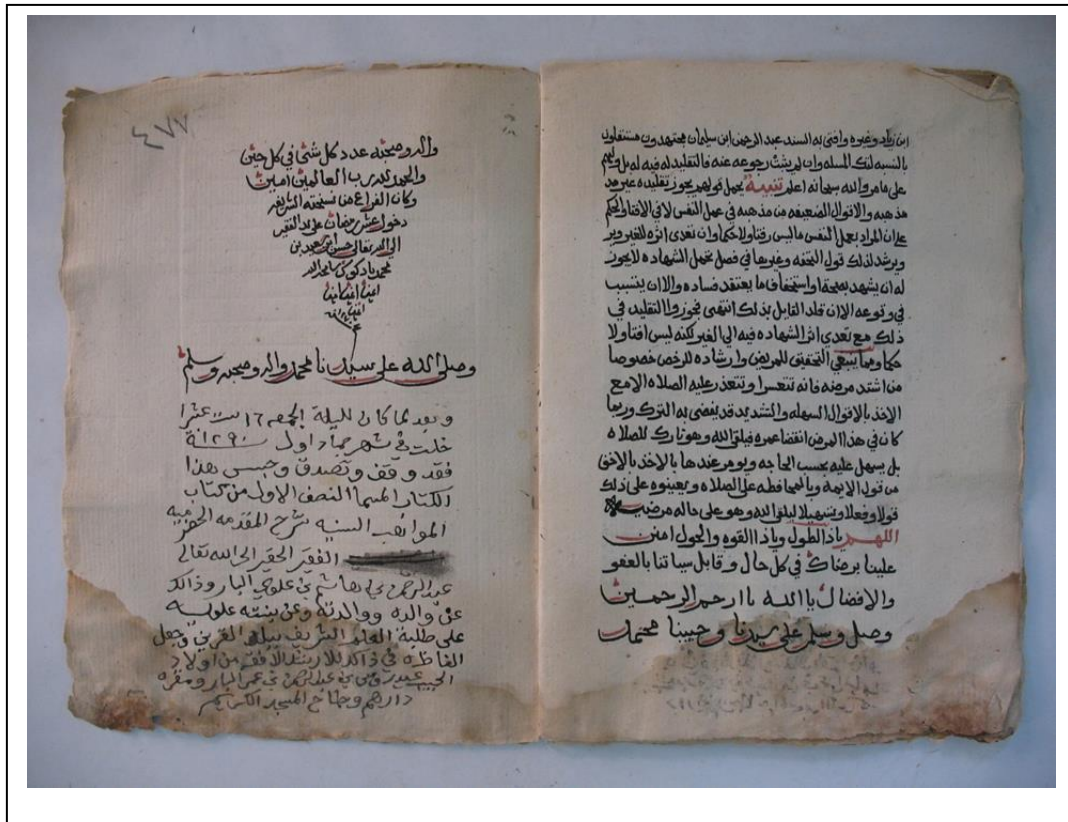 ابن زياد وغيره وافتى به السيد عبد الرحمن ابن سليمان مجتهدون مستقلون
بالنسبه لتلك المسله وان لم يثبت رجوعه عنه فالتقليد له فيه
على ما مر والله سبحانه اعلم تنبيه يحمل قولهم يجوز تقليده غير
مذهبه والاقوال الضعيفه من مذهبه في عمل النفس لا في الافتا والحكم
على ان المراد بعمل النفس ما ليس افتا ولا حكما وان تعدى اثره للغير
ويرشد لذلك قول التحفه وغيرها في فصل تحمل الشهاده لا يجوز
له ان يشهد بصحة او استحقاق ما يعتقد فساده ولا ان يتسبب
في وقوعه الا ان قلد القايل بذلك انتهى فجوزوا التقليد في
ذلك مع تعدي اثر الشهاده فيه الى الغير لكنه ليس افتا ولا
حكما ومما ينبغي التحقيق للمريض وارشاده للرخص خصوصا
من اشتد مرضه فانه تتعسر او تتعذر عليه الصلاه الا مع
الاخذ بالاقوال السهله والتشديد قد يفضي به الى الترك وربما
كان في هذا المرض انقضا عمره فيلقى الله وهو تارك للصلاه
بل يسهل عليه بحسب الحاجه ويومر عندها بالاخذ بالاخف
من قول الايمه وبالمحافظه على الصلاه ويعينوه على ذلك
قولا وفعلا وتسهيلا ليلقى الله وهو على حاله مرضيه
اللهم ياذا الطول وياذا القوه والحول امنن
علينا برضاك في كل حال وقابل سياتنا بالعفو
والافضال يا الله يا ارحم الرحمين
وصل وسلم على سيدنا وحبيبنا محمد
٤٧٧
واله وصحبه عدد كل شئ في كل حين
والحمد لله رب العالمين امين
وكان الفراغ من نسخته الشريفه
دخول عشر رمضان على يد الفقير
الى الله تعالى حسن ابن سعيد بن
محمد
امين امين امين
امين
وصلى الله على سيدنا محمد واله وصحبه وسلم
وبعد لما كان لليلة الجمعه ١٦ ست عشر
خلت في شهر جماد اول سنة ١٢٩٠
فقد وقف وتصدق وحبس هذا
الكتاب المسما النصف الاول من كتاب
المواهب السنيه شرح المقدمه الحضرميه
الفقير الحقير الى الله تعالى
عبد الرحمن بن هاشم بن علوي البار وذالك
عن والده ووالدته وعن بنته علويه
على طلبة العلم الشريف ببلد القرين وجعل
الناظره في ذالك للارشد الافقه من اولاد
الحبيب عيدروس بن عبد الرحمن بن عمر البار ومقره
دارهم المسجد